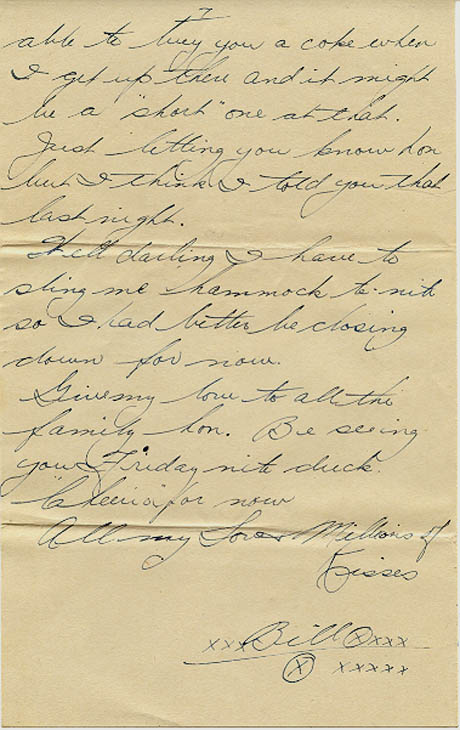 7
able to buy you a coke when
I get up there and it might
be a "short" one at that.
Just letting you know hon
but I think I told you that
last night.
Well darling I have to
sling me hammock to-nite
so I had better be closing
down for now.
Give my love to all the
family hon. Be seeing
you Friday nite duck.
"Cheerio" for now
All my Love & Millions of
Kisses
xxx Bill Ⓧ xxx
Ⓧ xxxxx